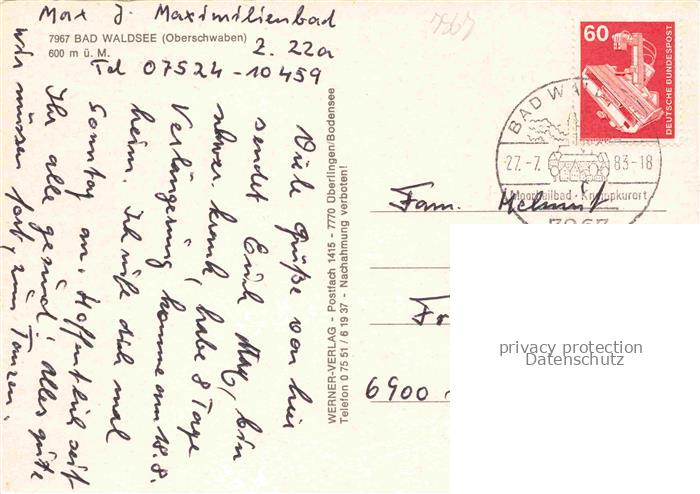 Max J. Maximilienbad
7967 BAD WALDSEE (Oberschwaben)
600 m ü. M.
Z. 22a
Tel 07524-10459
7967
Viele Grüße von hier
sendet Euch Max, bin
schwer krank, habe 8 Tage
Verlängerung, komme am 18.8.
heim. Ich rufe dich mal
Sonntag an. Hoffentlich seit
Ihr alle gesund! Alles gute
wir müssen fort, zum Tanzen.
WERNER-VERLAG - Postfach 1415 - 7770 Überlingen/Bodensee
Telefon 0 75 51 / 6 19 37 - Nachahmung verboten!
60
DEUTSCHE BUNDESPOST
BAD WALD
27.-7. 83-18
Moorheilbad · Kneippkurort
7967
Fam. Helmut
Fr
6900
privacy protection
Datenschutz